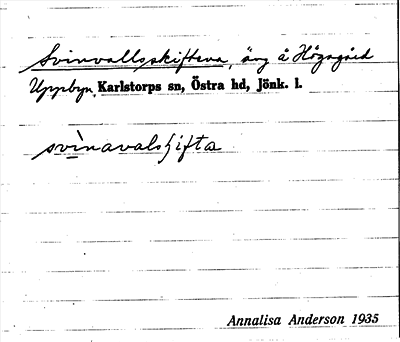 Svinvallsskiftena, äng å Högagärd
Uppbyn, Karlstorps sn, Östra hd, Jönk. l.
svinavalsʃifta
Annalisa Anderson 1935